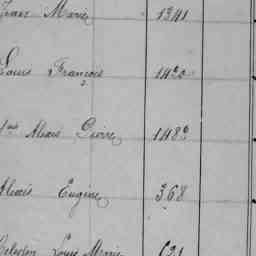 Jean Marie 1341
Louis François 1420
Alexis Pierre 1480
Alexis Eugène 368
Louis Marie 621